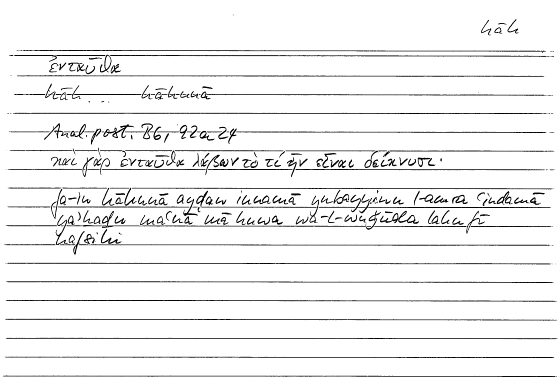 hāh
ἐνταῦθα
hāh... hāhunā
Anal. post. B6, 92a24
καὶ γὰρ ἐνταῦθα λαβὼν τὸ τί ἦν εἶναι δείκνυσι.
fa-in hāhunā ayḍan innamā yubayyinu l-amra ʿindamā
yaʾḫaḏu maʿnā mā huwa wa-l-wuǧūda lahu fī
nafsihi